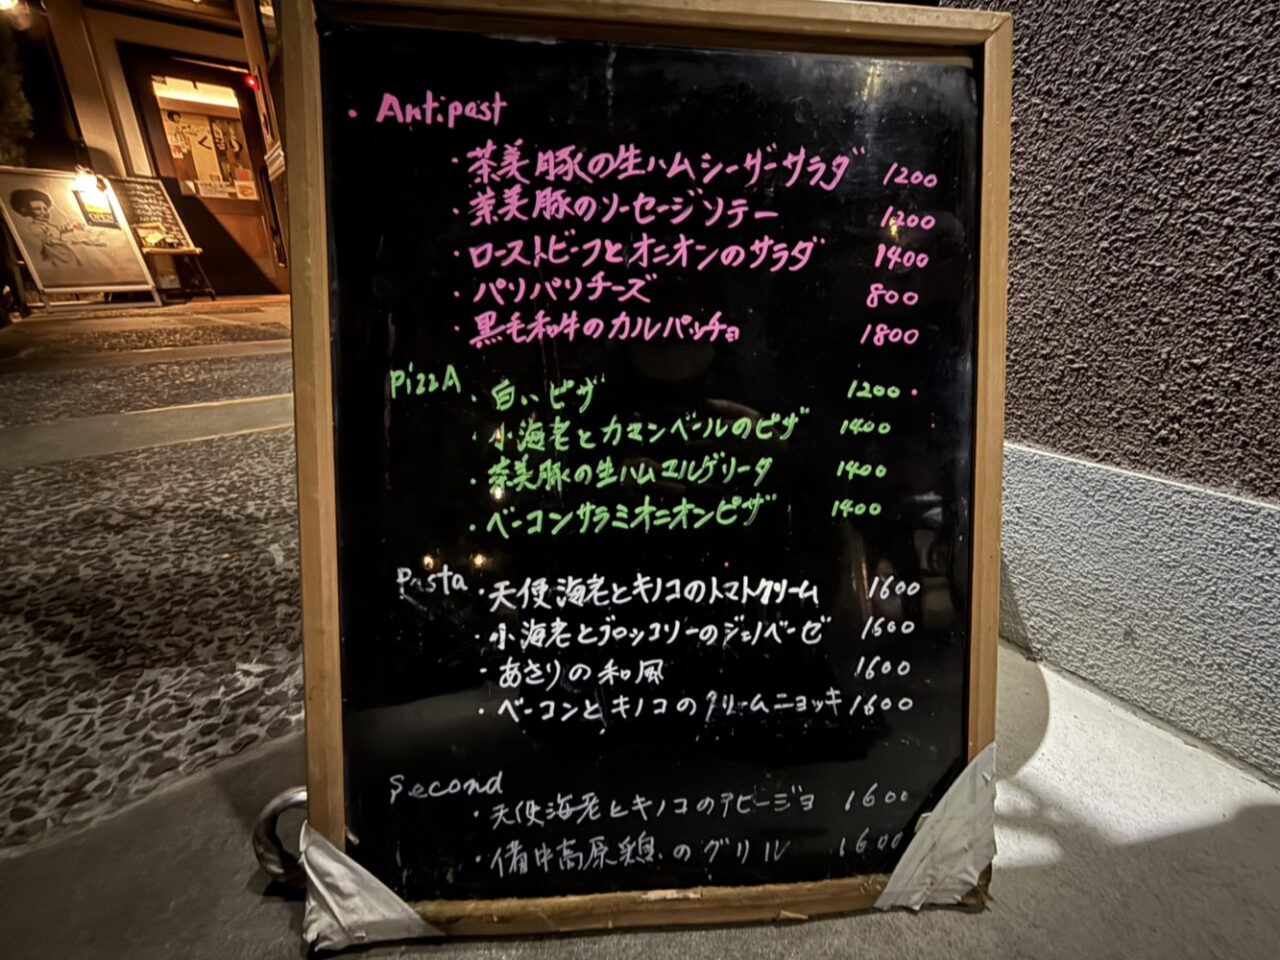 ・Antipast
・茶美豚の生ハムシーザーサラダ 1200
・茶美豚のソーセージソテー 1200
・ローストビーフとオニオンのサラダ 1400
・パリパリチーズ 800
・黒毛和牛のカルパッチョ 1800
PizzA
・白いピザ 1200
・小海老とカマンベールのピザ 1400
・茶美豚の生ハムマルゲリータ 1400
・ベーコンサラミオニオンピザ 1400
Pasta
・天使海老とキノコのトマトクリーム 1600
・小海老とブロッコリーのジェノベーゼ 1600
・あさりの和風 1600
・ベーコンとキノコのクリームニョッキ 1600
Second
・天使海老とキノコのアヒージョ 1600
・備中高原鶏のグリル 1600
OPEN